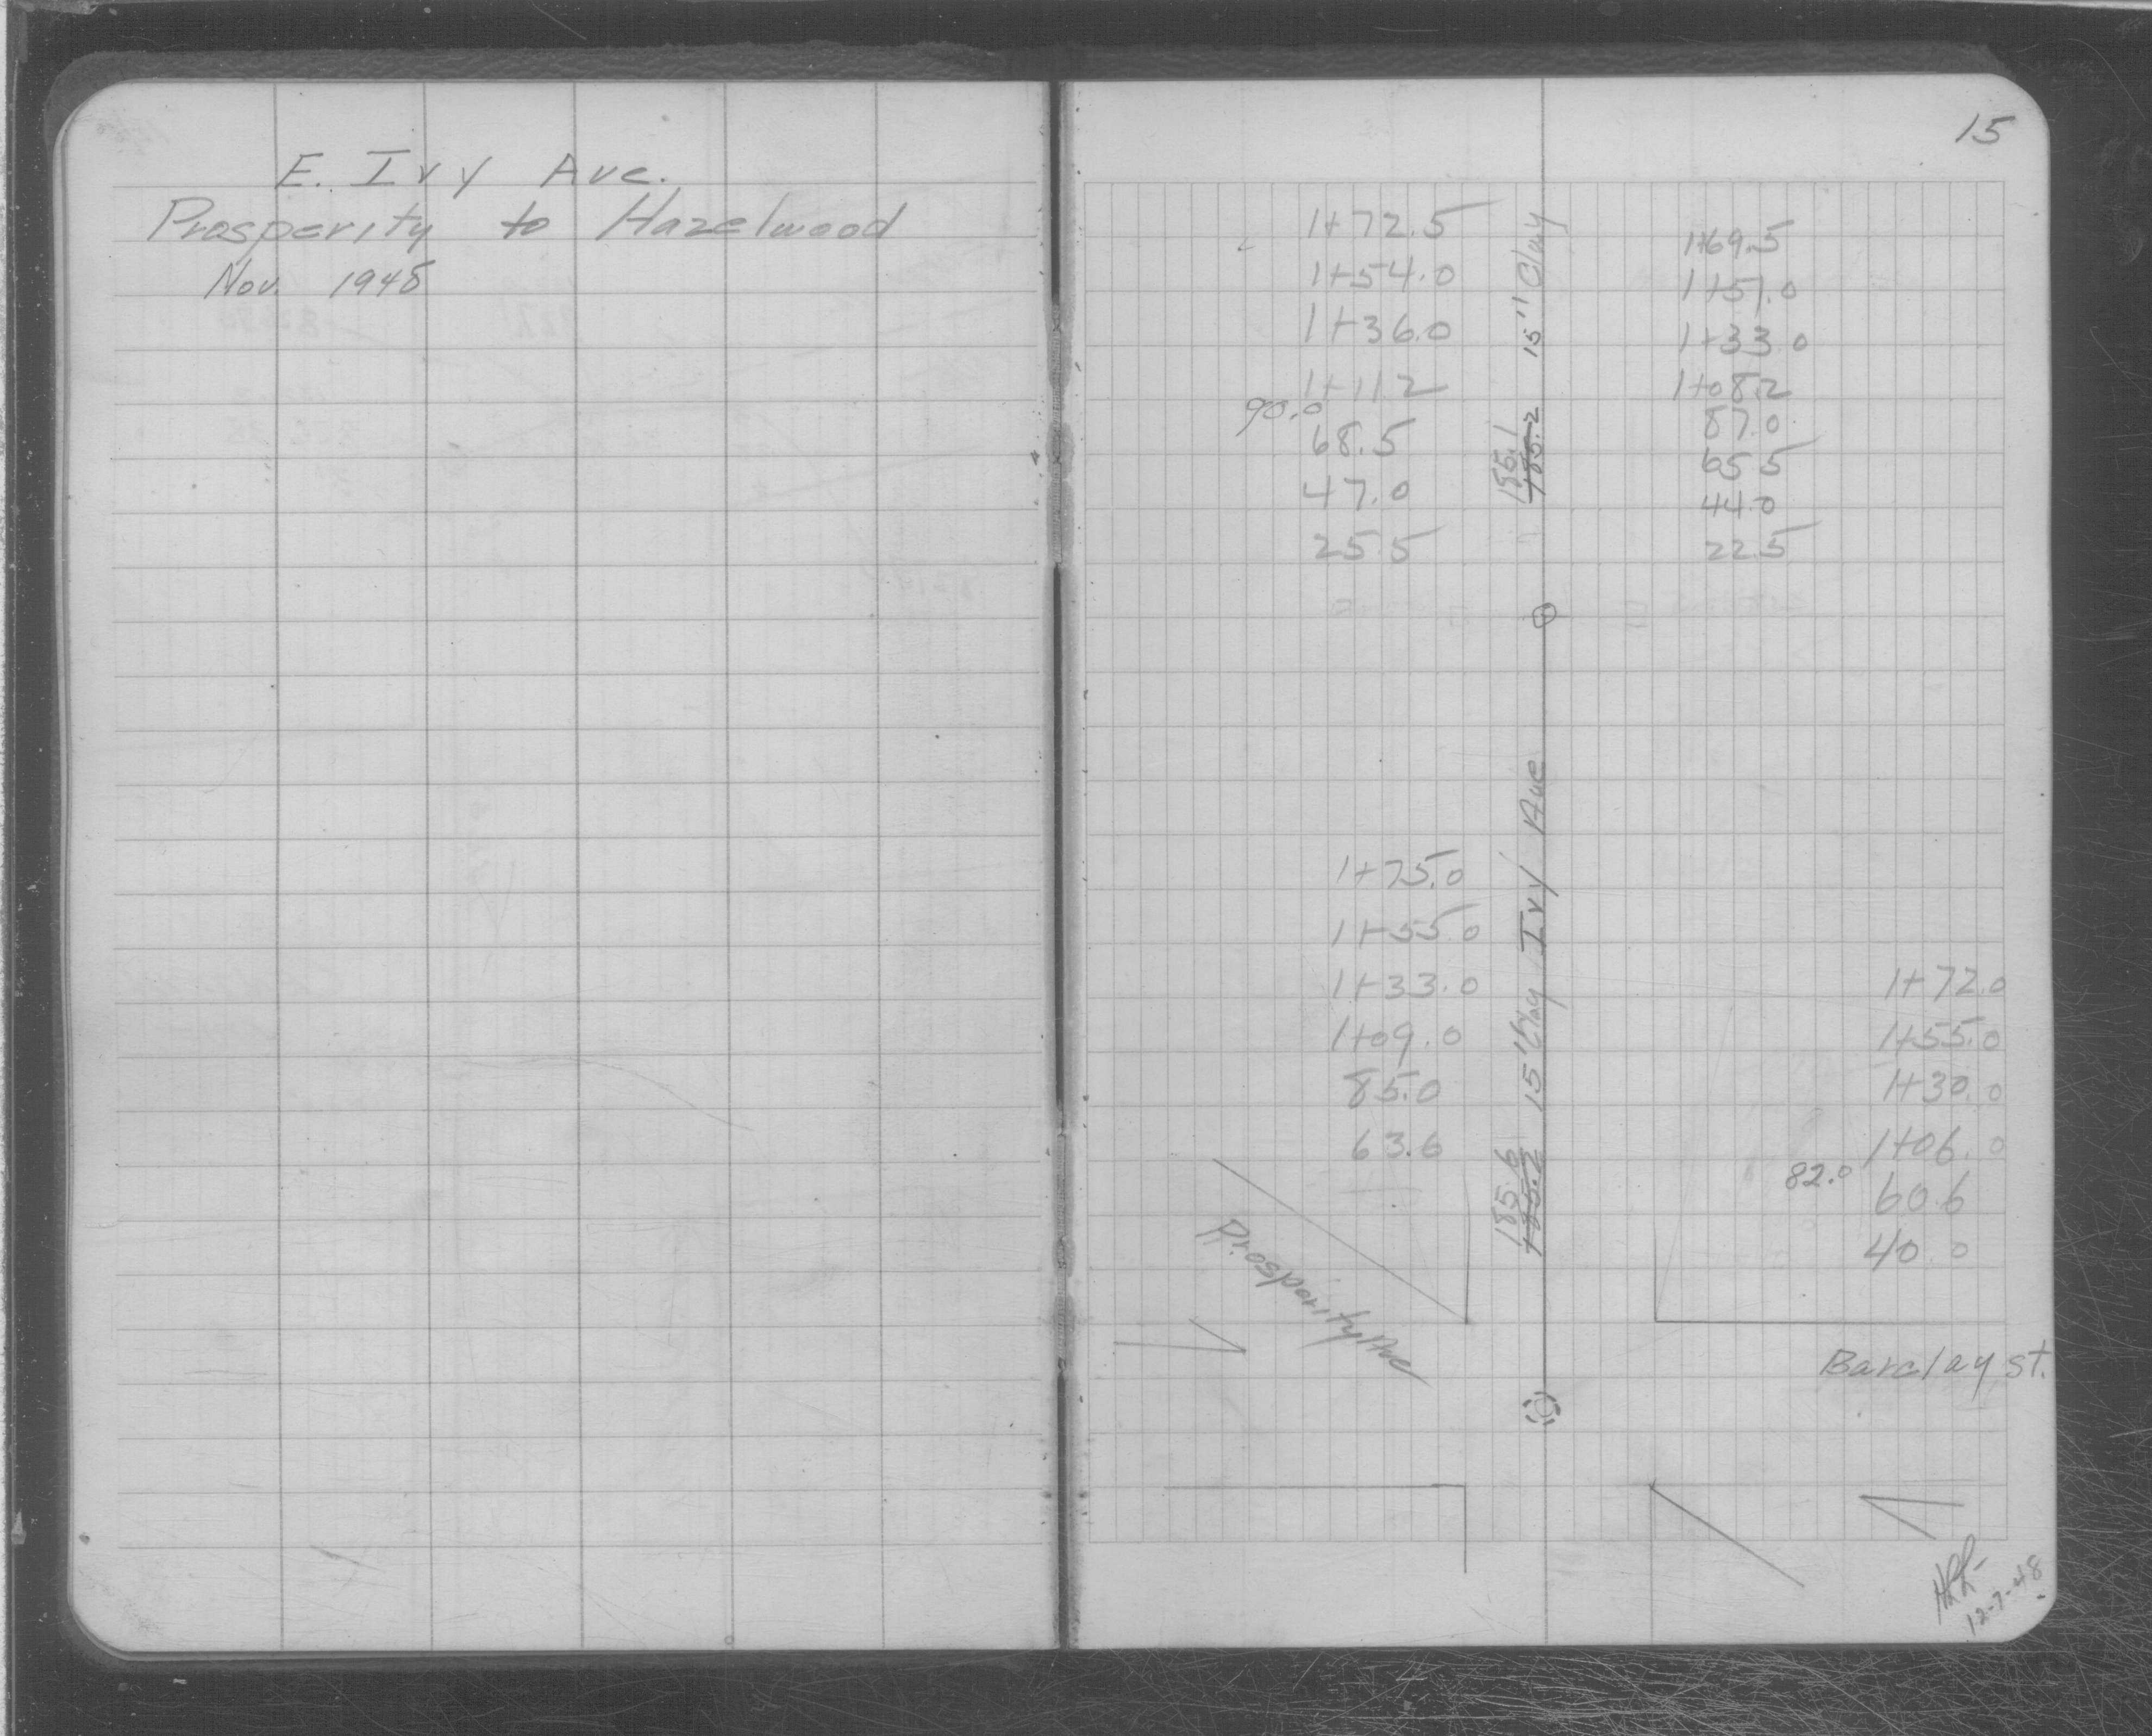 E. Ivy Ave.
Prosperity to Hazelwood
Nov. 1948
15
1+72.5
1+54.0
1+36.0
1+11.2
90.0
68.5
47.0
25.5
15" Clay
185.1
185.2
1+69.5
1+51.0
1+33.0
1+08.2
87.0
65.5
44.0
22.5
1+75.0
1+55.0
1+33.0
1+09.0
85.0
63.6
Ivy Ave
15" Clay
185.6
185.2
1+72.0
1+55.0
1+30.0
1+06.0
82.0
60.6
40.0
Prosperity Ave
Barclay st.
12-7-48